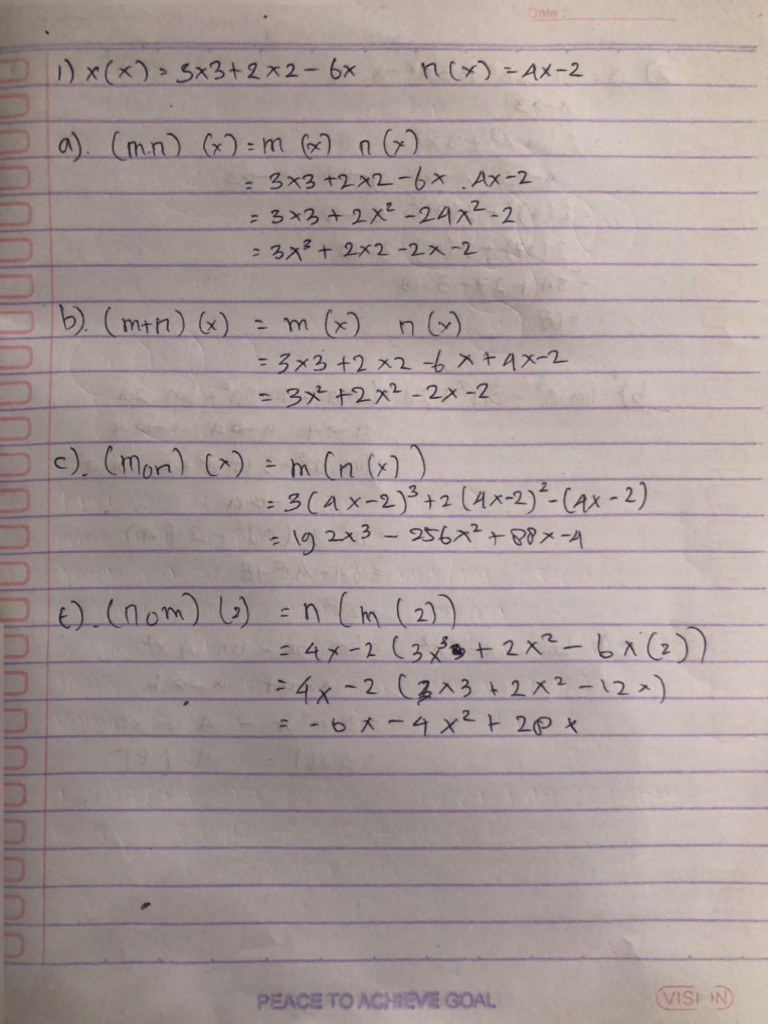 Date:
1) x(x) = 3x3+2x2-6x n(x) = 4x-2
a). (m.n) (x) = m (x) n(x)
= 3x3+2x2-6x . 4x-2
= 3x3+2x²-24x²-2
= 3x³+2x2-2x-2
b). (m+n) (x) = m (x) n(x)
= 3x3+2x2-6x+4x-2
= 3x²+2x²-2x-2
c). (mon) (x) = m(n(x))
= 3(4x-2)³+2(4x-2)²-(4x-2)
= 192x³-256x²+88x-4
t). (nom) (2) = n(m(2))
= 4x-2 (3x³+2x²-6x(2))
= 4x-2 (3x3+2x²-12x)
= -6x-4x²+28x
PEACE TO ACHIEVE GOAL
VISION